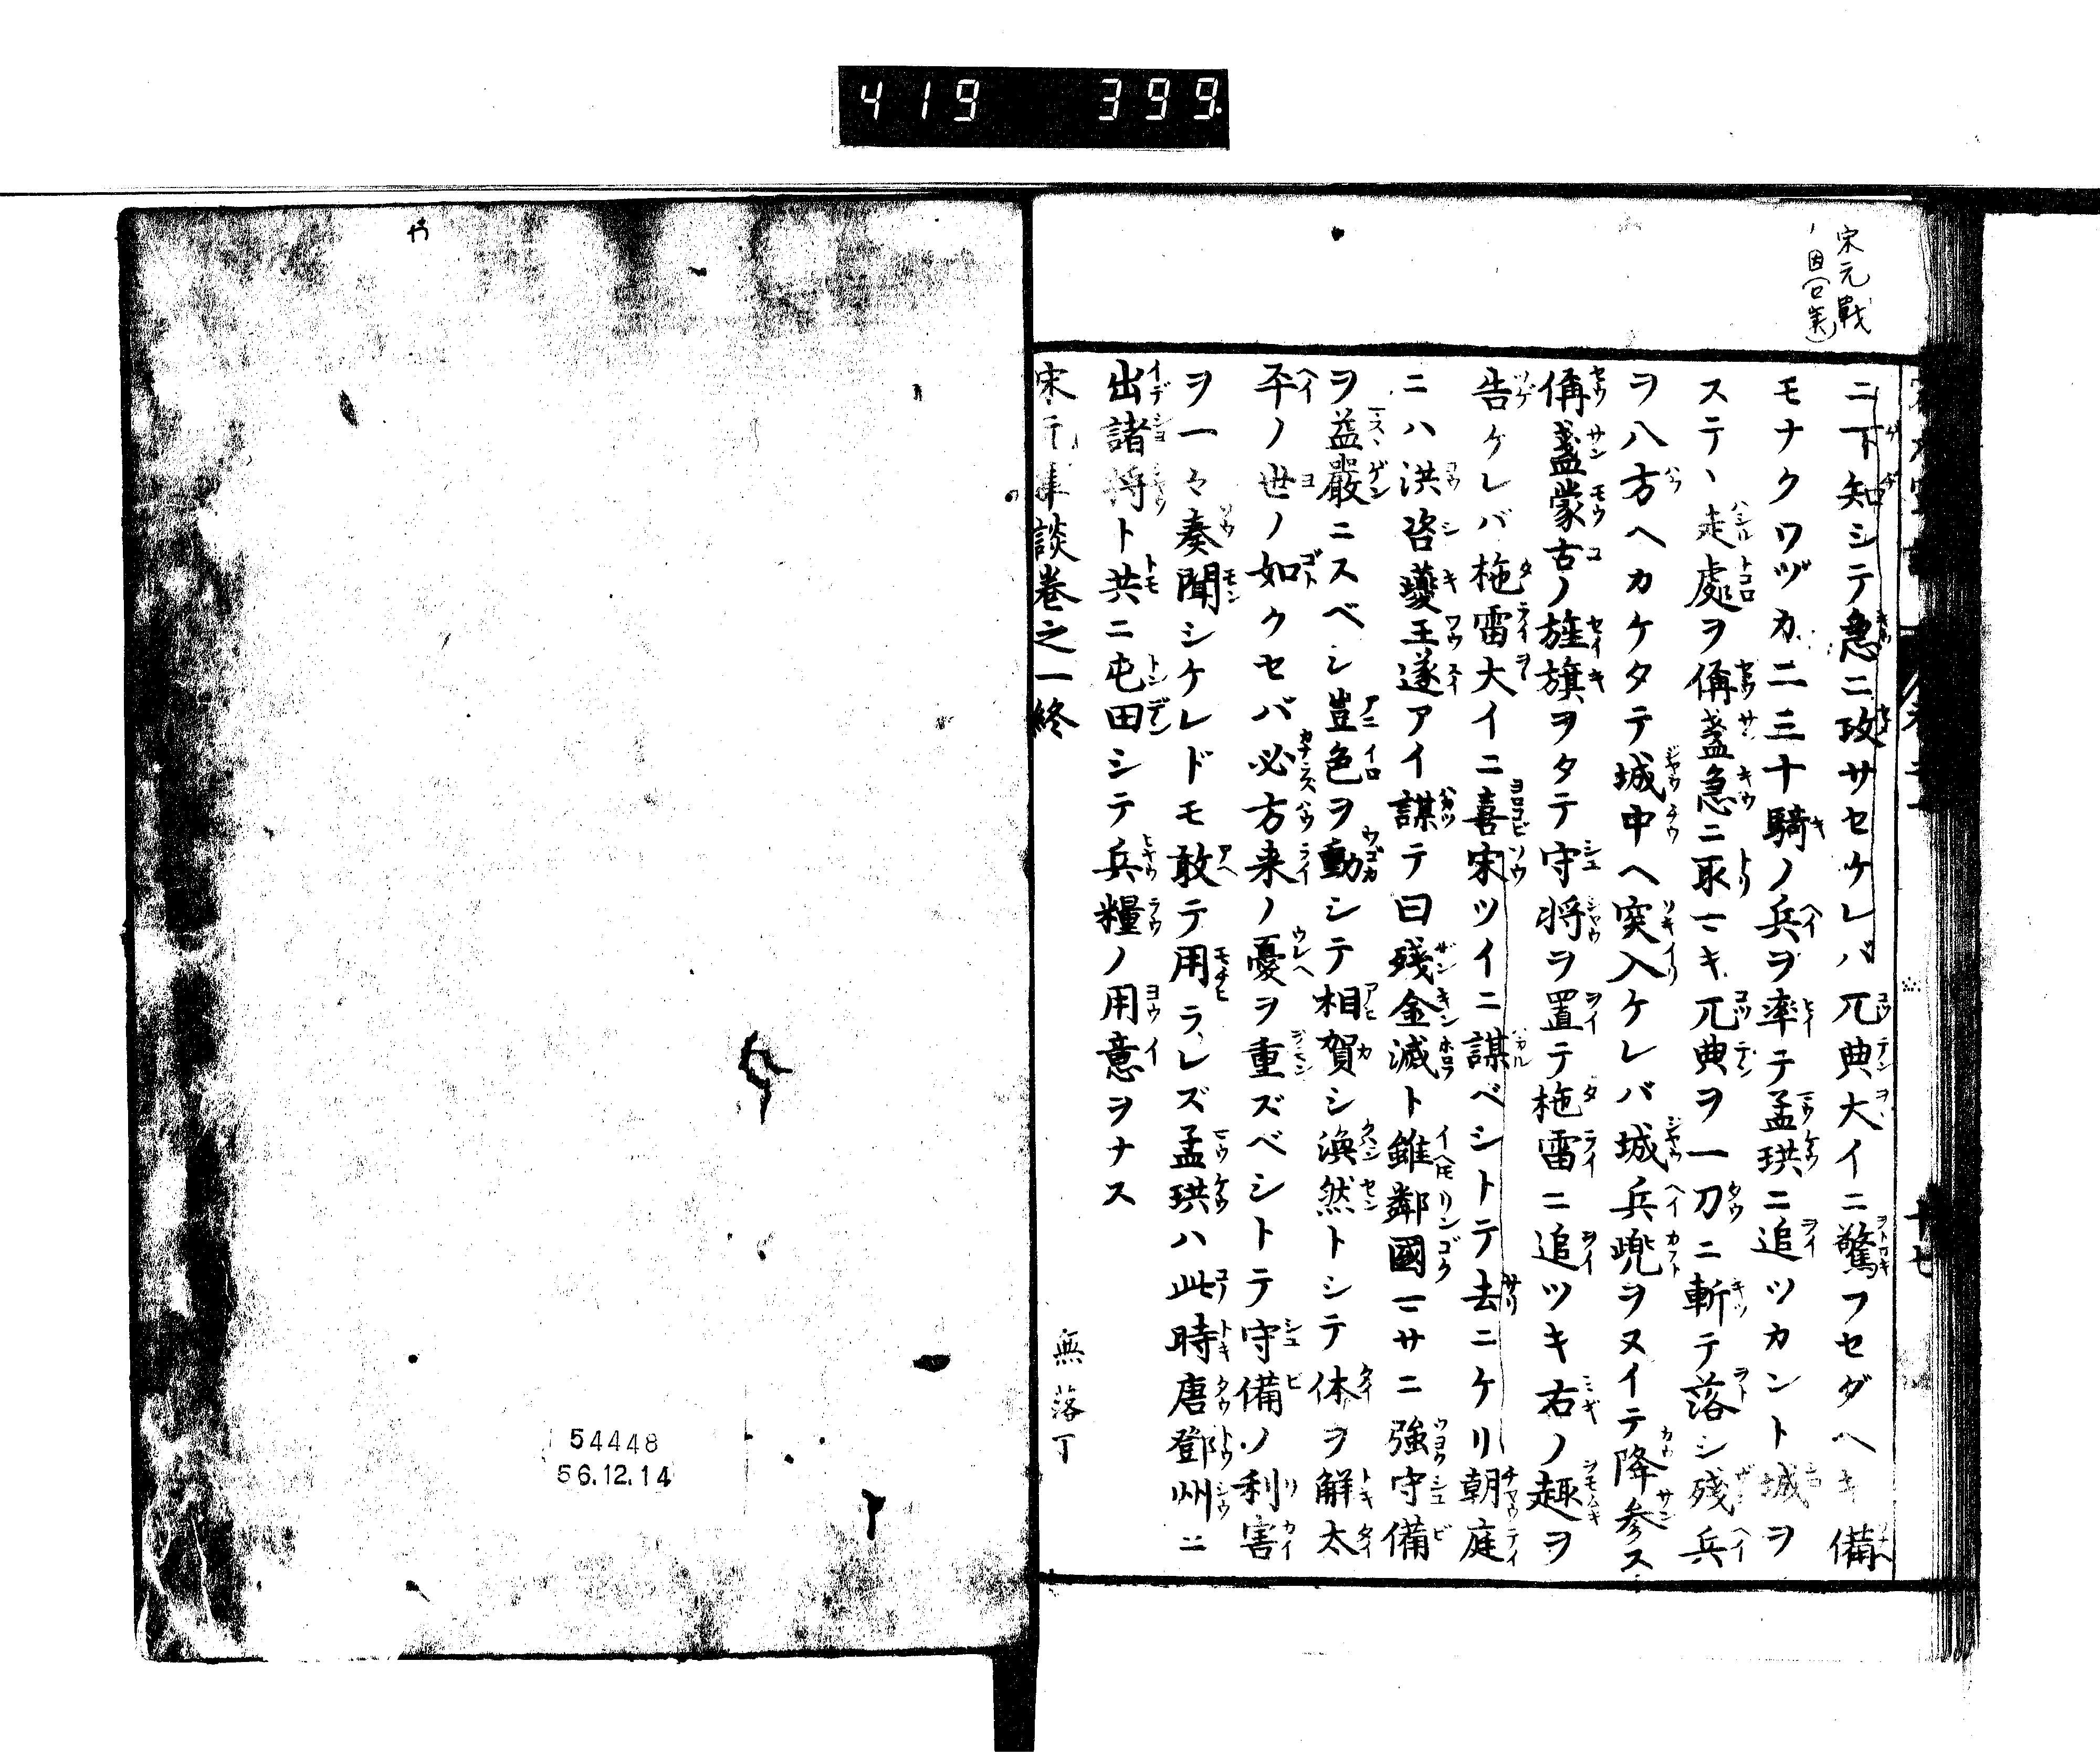 419 399
宋元戦
ノ因(口実)
ニ下知シテ急ニ攻サセケレバ兀典大イニ驚フセダヘキ備
モナクワヅカ二三十騎ノ兵ヲ率テ孟珙ニ追ツカント城ヲ
ステヽ走處ヲ偁盞急ニ取マキ兀典ヲ一刀ニ斬テ落シ殘兵
ヲ八方ヘカケタテ城中ヘ突入ケレバ城兵兜ヲヌイテ降参ス
偁盞蒙古ノ旌旗ヲタテ守将ヲ置テ拖雷ニ追ツキ右ノ趣ヲ
告ケレバ拖雷大イニ喜宋ツイニ謀ベシトテ去ニケリ朝庭
ニハ洪咨夔王遂アイ謀テ曰殘金滅ト雖鄰國マサニ強守備
ヲ益嚴ニスベシ豈色ヲ動シテ相賀シ渙然トシテ体ヲ解太
平ノ世ノ如クセバ必方来ノ憂ヲ重ズベシトテ守備ノ利害
ヲ一々奏聞シケレドモ敢テ用ラレズ孟珙ハ此時唐鄧州ニ
出諸将ト共ニ屯田シテ兵糧ノ用意ヲナス
宋元軍談巻之一終
無落丁
54448
56.12.14